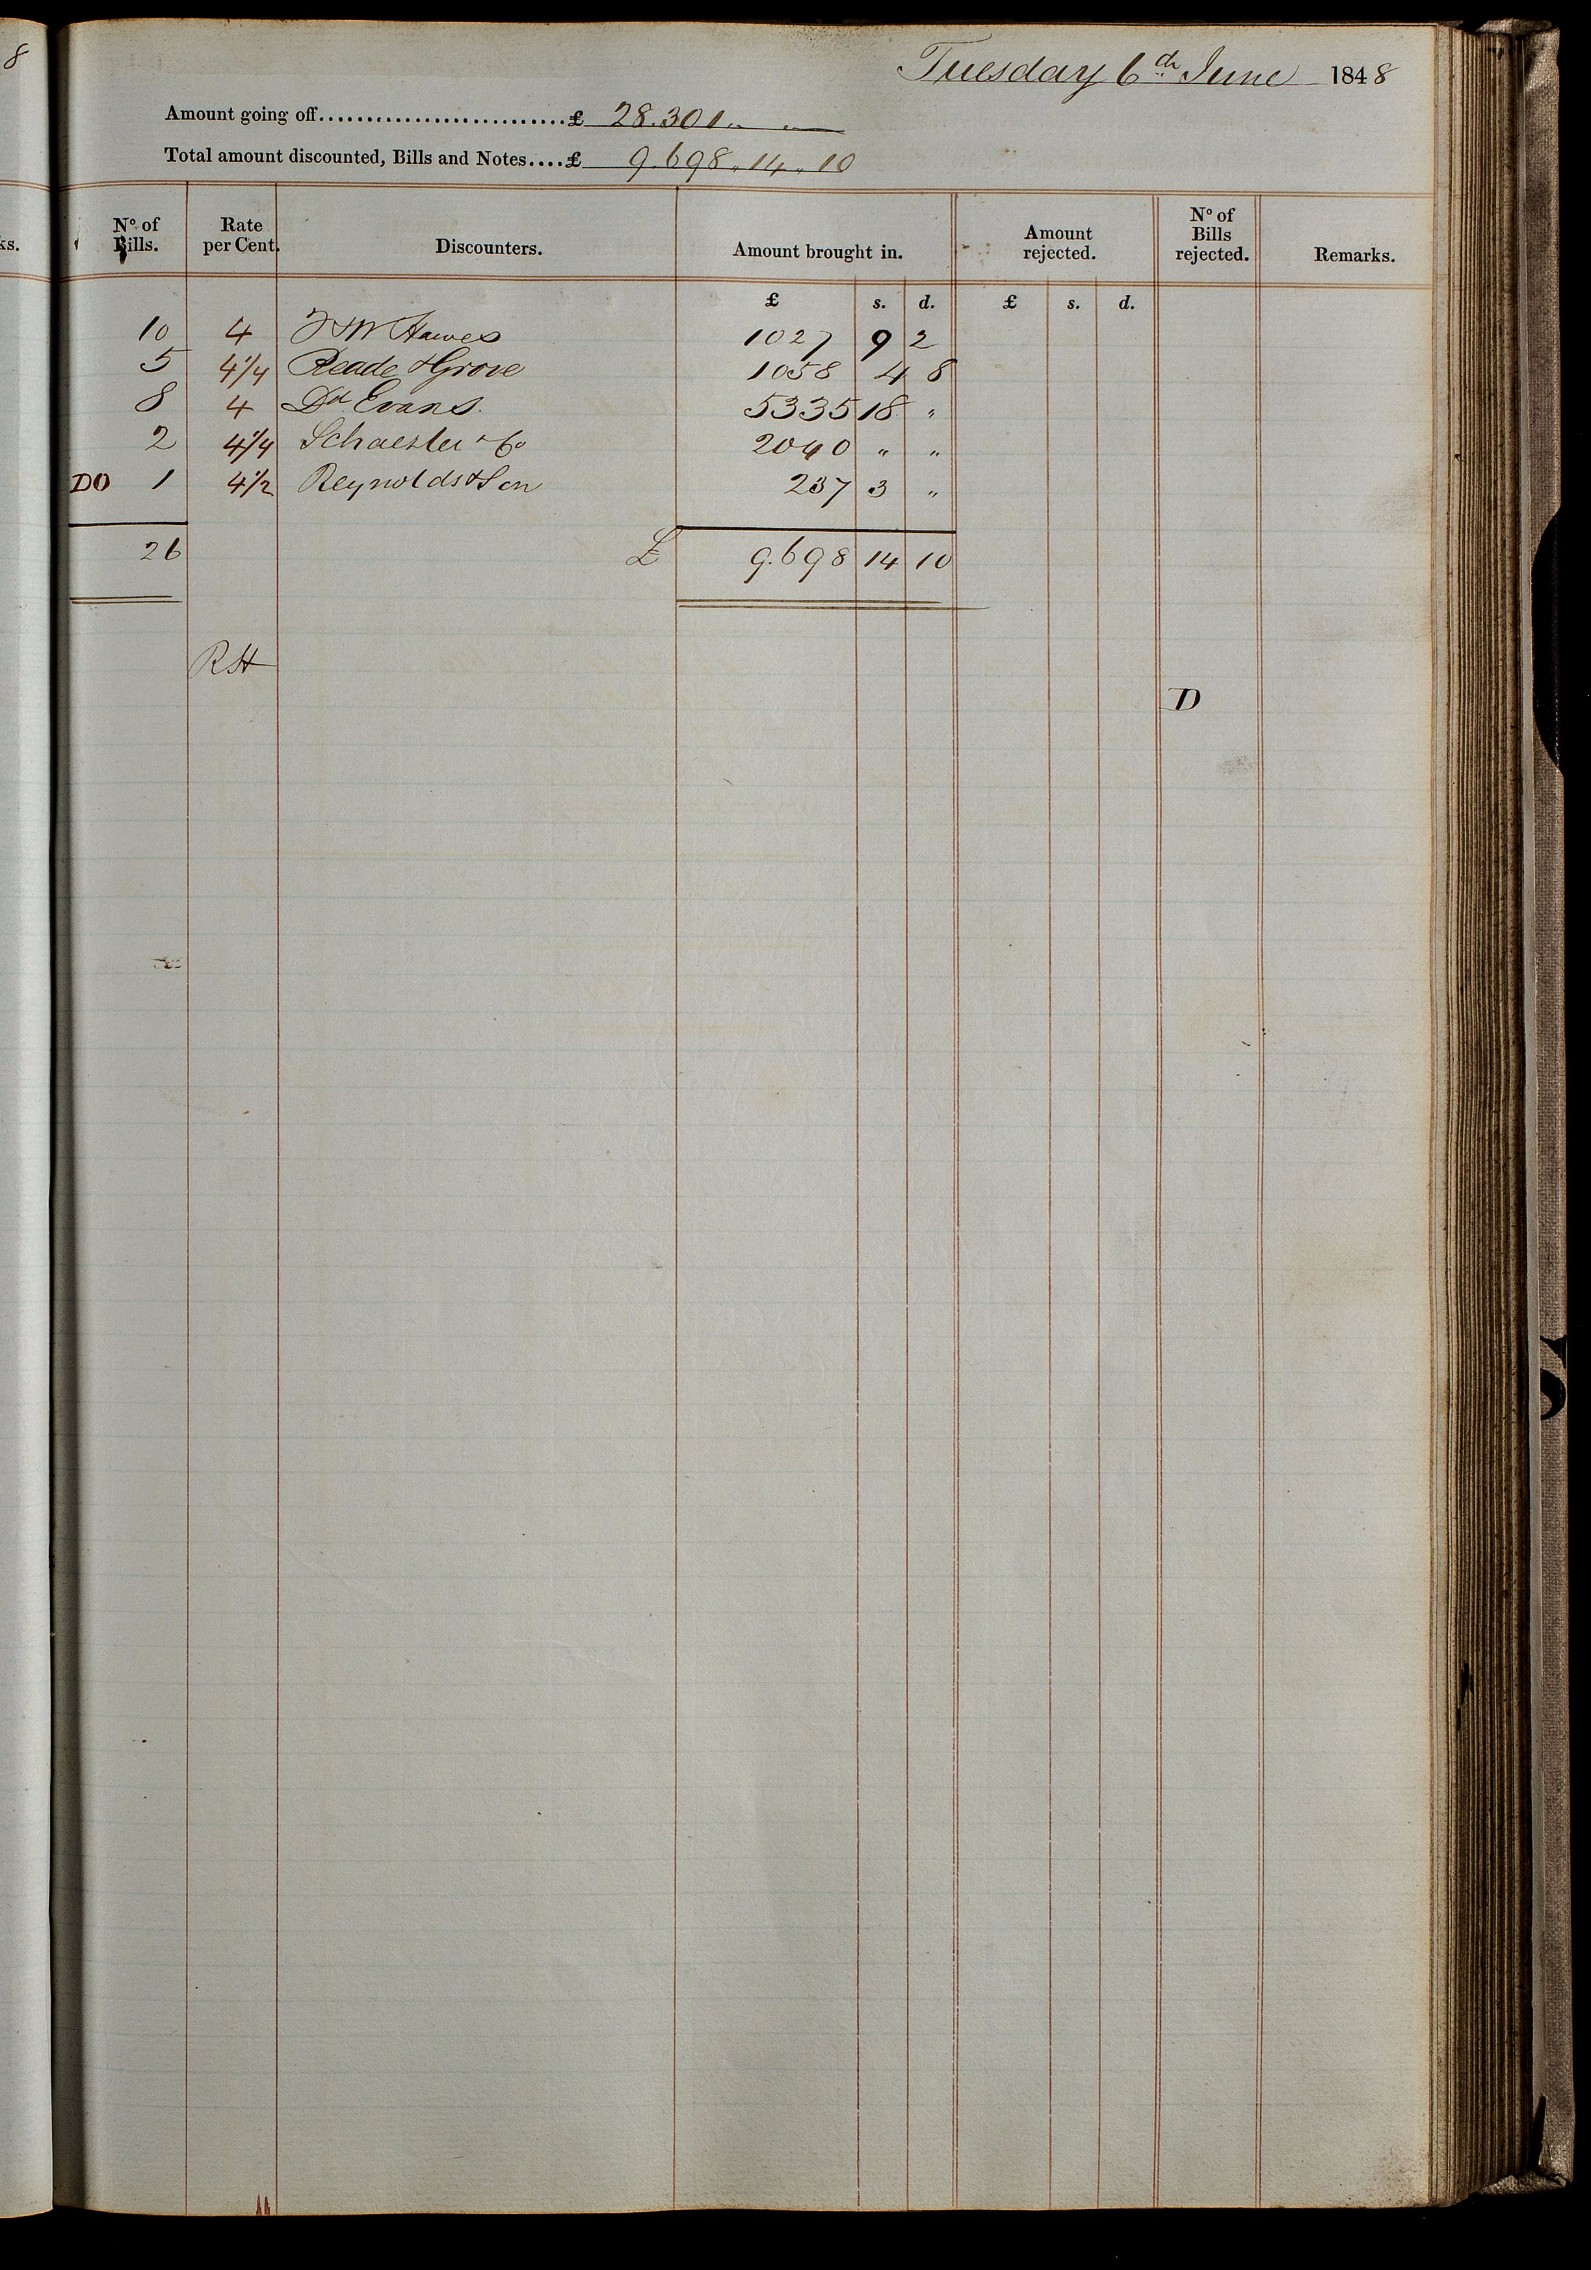 8
Tuesday 6th June 1848
Amount going off...........................£ 28.301 " " —
Total amount discounted, Bills and Notes....£ 9.698 " 14 " 10
ks. No of Bills. Rate per Cent. Discounters. Amount brought in. Amount rejected. No of Bills rejected. Remarks.
£ s. d. £ s. d.
10 4 & W Hawes 1027 9 2
5 4 1/4 Reade & Grove 1058 4 8
8 4 Dd Evans. 5335 18 "
2 4 1/4 & Co 2040 " "
DO 1 4 1/2 Reynolds & Son 237 3 "
26 £ 9.698 14 10
RH
D